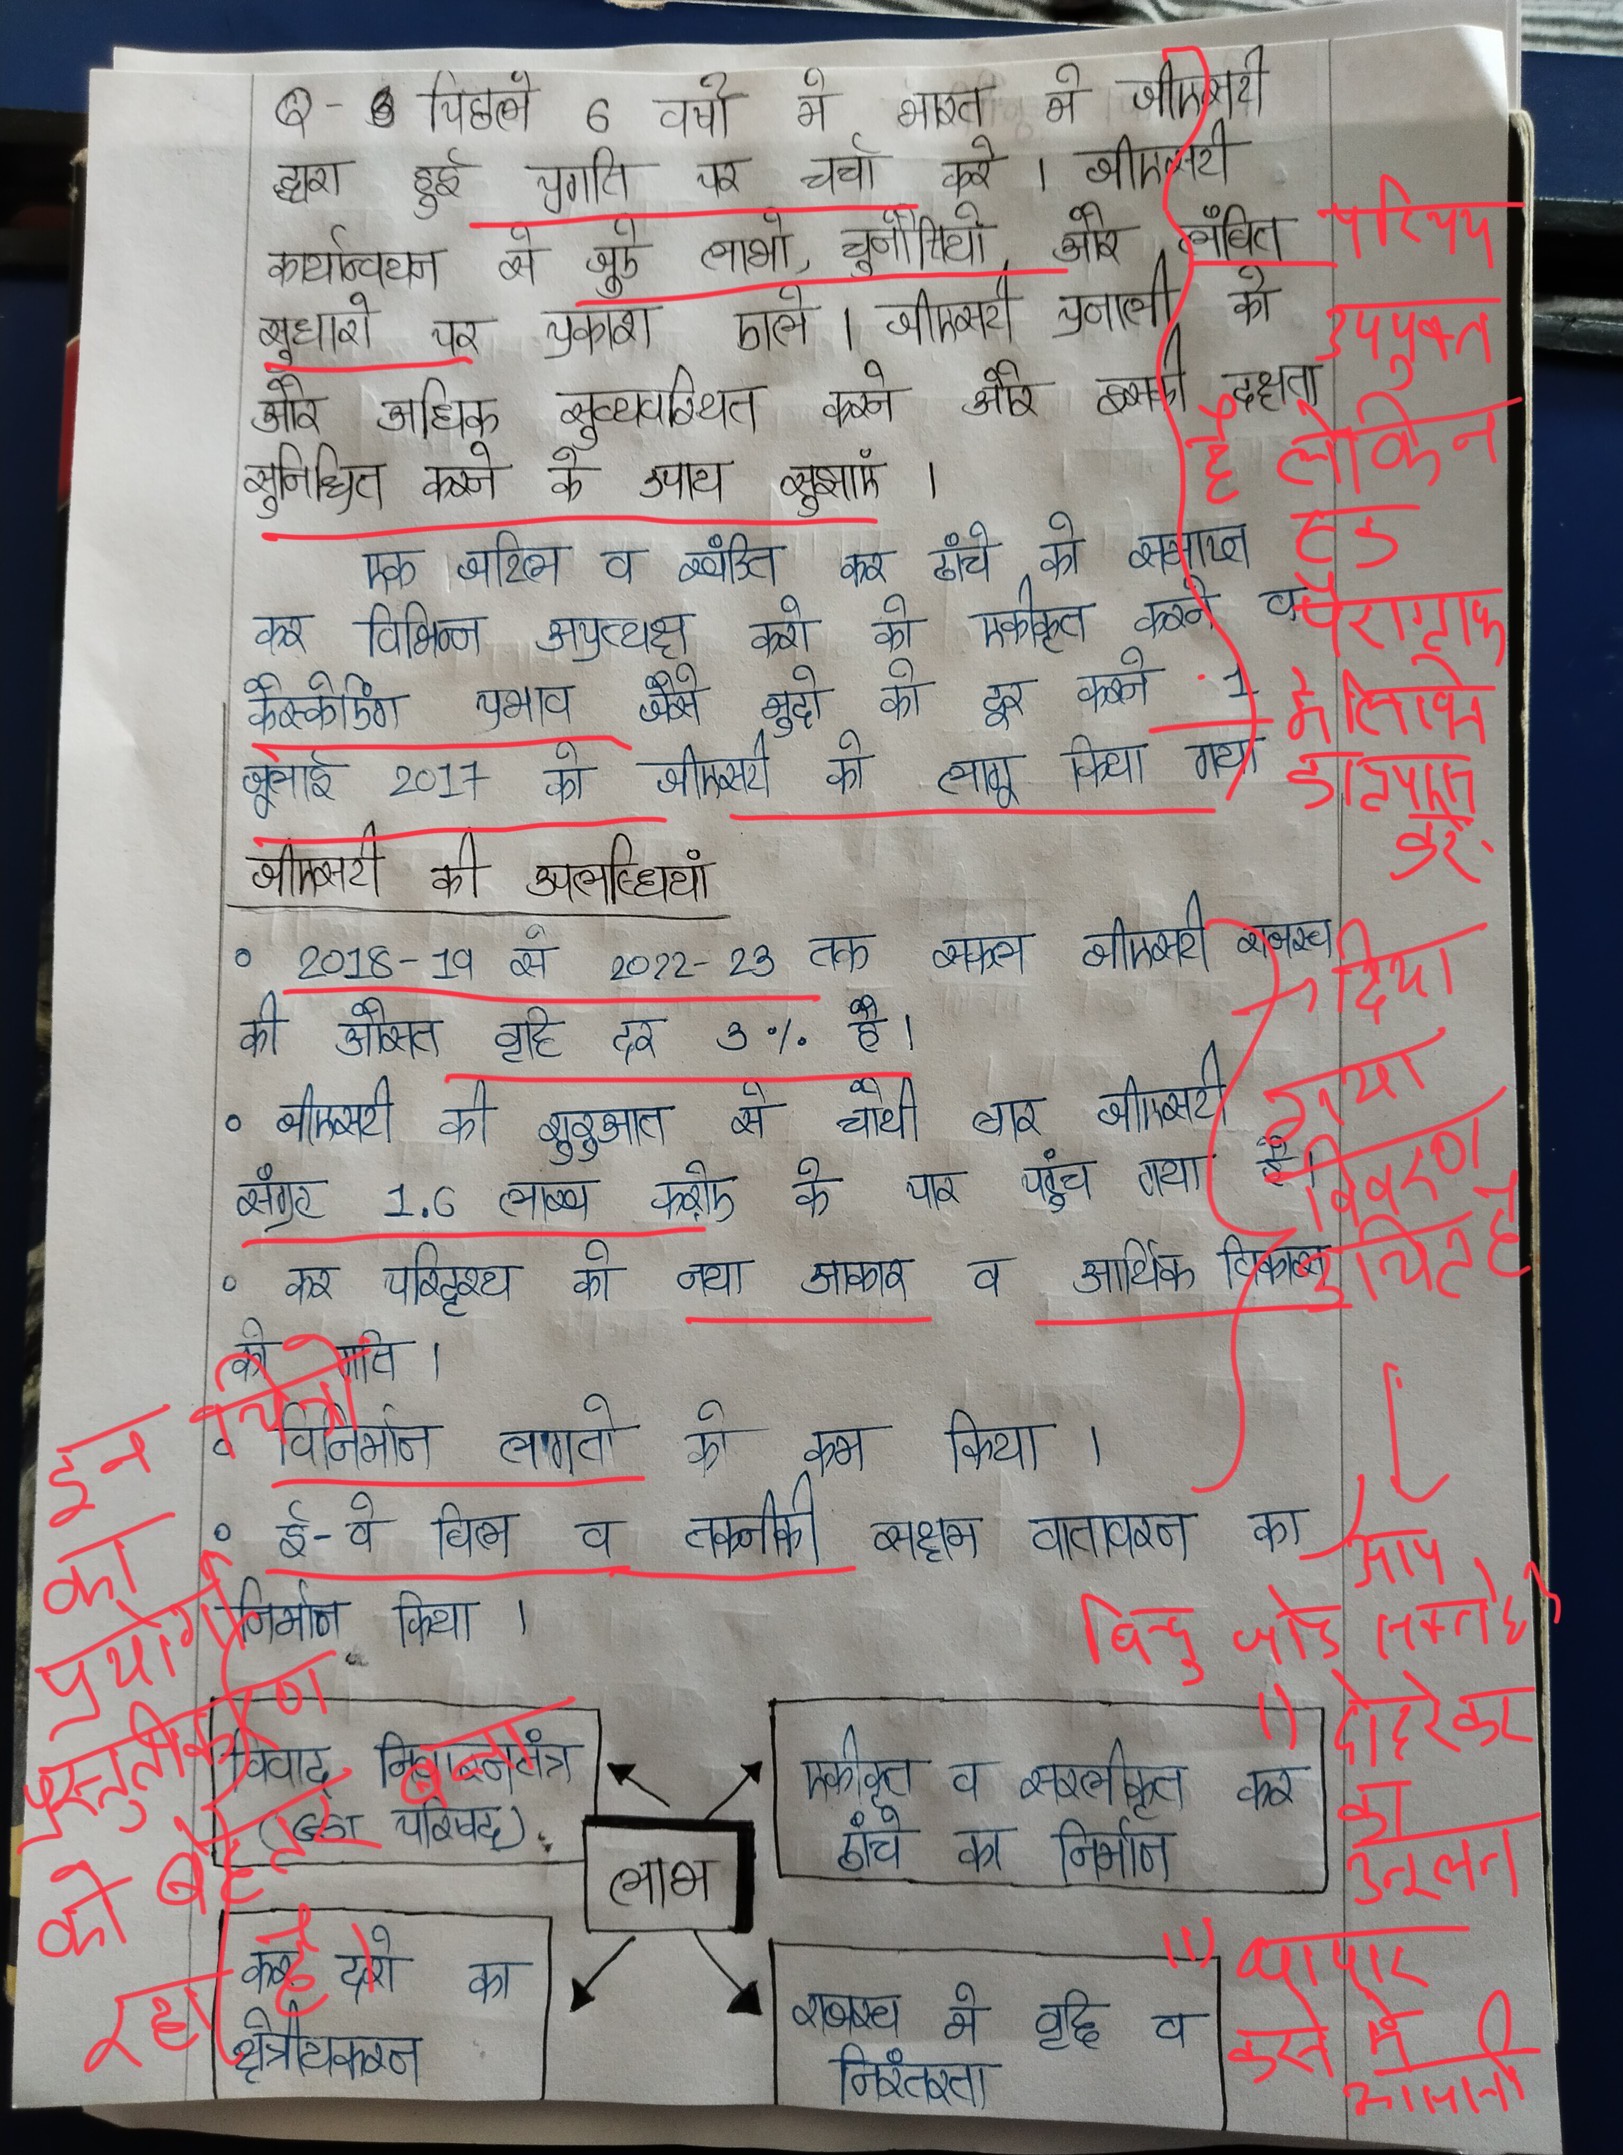 Q- 8 पिछले 6 वर्षो मे भारत मे जीएसटी
द्वारा हुई प्रगति पर चर्चा करे । जीएसटी
कार्यान्वयन से जुड़े लाभो, चुनौतियो और लंबित
सुधारो पर प्रकाश डाले । जीएसटी प्रनाली को
और अधिक सुव्यवस्थित करने और इसकी दक्षता
सुनिश्चित करने के उपाय सुझाएं ।
एक जटिल व खंडित कर ढांचे को समाप्त
कर विभिन्न अप्रत्यक्ष करो को एकीकृत करने व
कैस्केडिंग प्रभाव जैसे मुद्दो को दूर करने 1
जुलाई 2017 को जीएसटी को लागू किया गया
परिचय
उपयुक्त
है लेकिन
पैराग्राफ
मे लिखने
करें.
जीएसटी की उपलब्धियां
° 2018-19 से 2022-23 तक सकल जीएसटी राजस्व
की औसत वृद्दि दर 3% है।
° जीएसटी की शुरुआत से चौथी बार जीएसटी
संग्रह 1.6 लाख करोड़ के पार पहुंच गया है।
° कर परिदृश्य को नया आकार व आर्थिक विकास
को गति ।
° विनिर्मान लागतो को कम किया ।
° ई-वे बिल व तकनीकी सक्षम वातावरन का
निर्मान किया ।
दिया
गया
विवरण
उचित है
आप
बिन्दु जोड़ सकते है
i) दोहरे कर
का
उन्मूलन
ii) व्यापार
करने मे
आसानी
इन चित्रो
का
प्रयोग
प्रस्तुतीकरण
को बेहतर बना
रहा है
विवाद निवारनतंत्र
(GST परिषद)
एकीकृत व सरलीकृत कर
ढांचे का निर्मान
लाभ
कर दरो का
क्षेत्रीयकरन
राजस्व मे वृद्दि व
निरंतरता